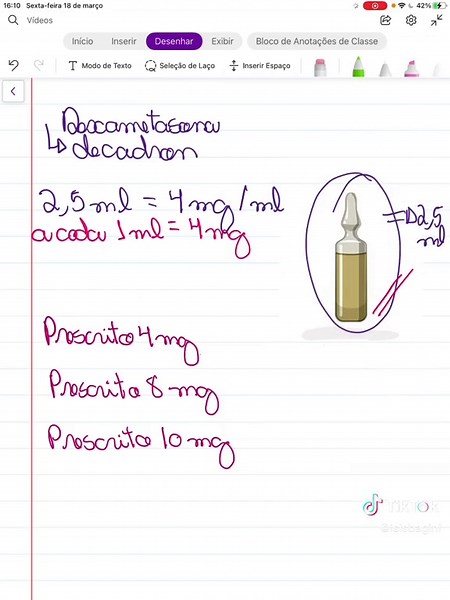 16:10 Sexta-feira 18 de março
42%
Vídeos
Início Inserir Desenhar Exibir Bloco de Anotações de Classe
Modo de Texto Seleção de Laço Inserir Espaço
Dexametasona
decadron
2,5 ml = 4 mg/ml
a cada 1 ml = 4 mg
=D 2,5 ml
Prescrito 4 mg
Prescrito 8 mg
Prescrito 10 mg
TikTok